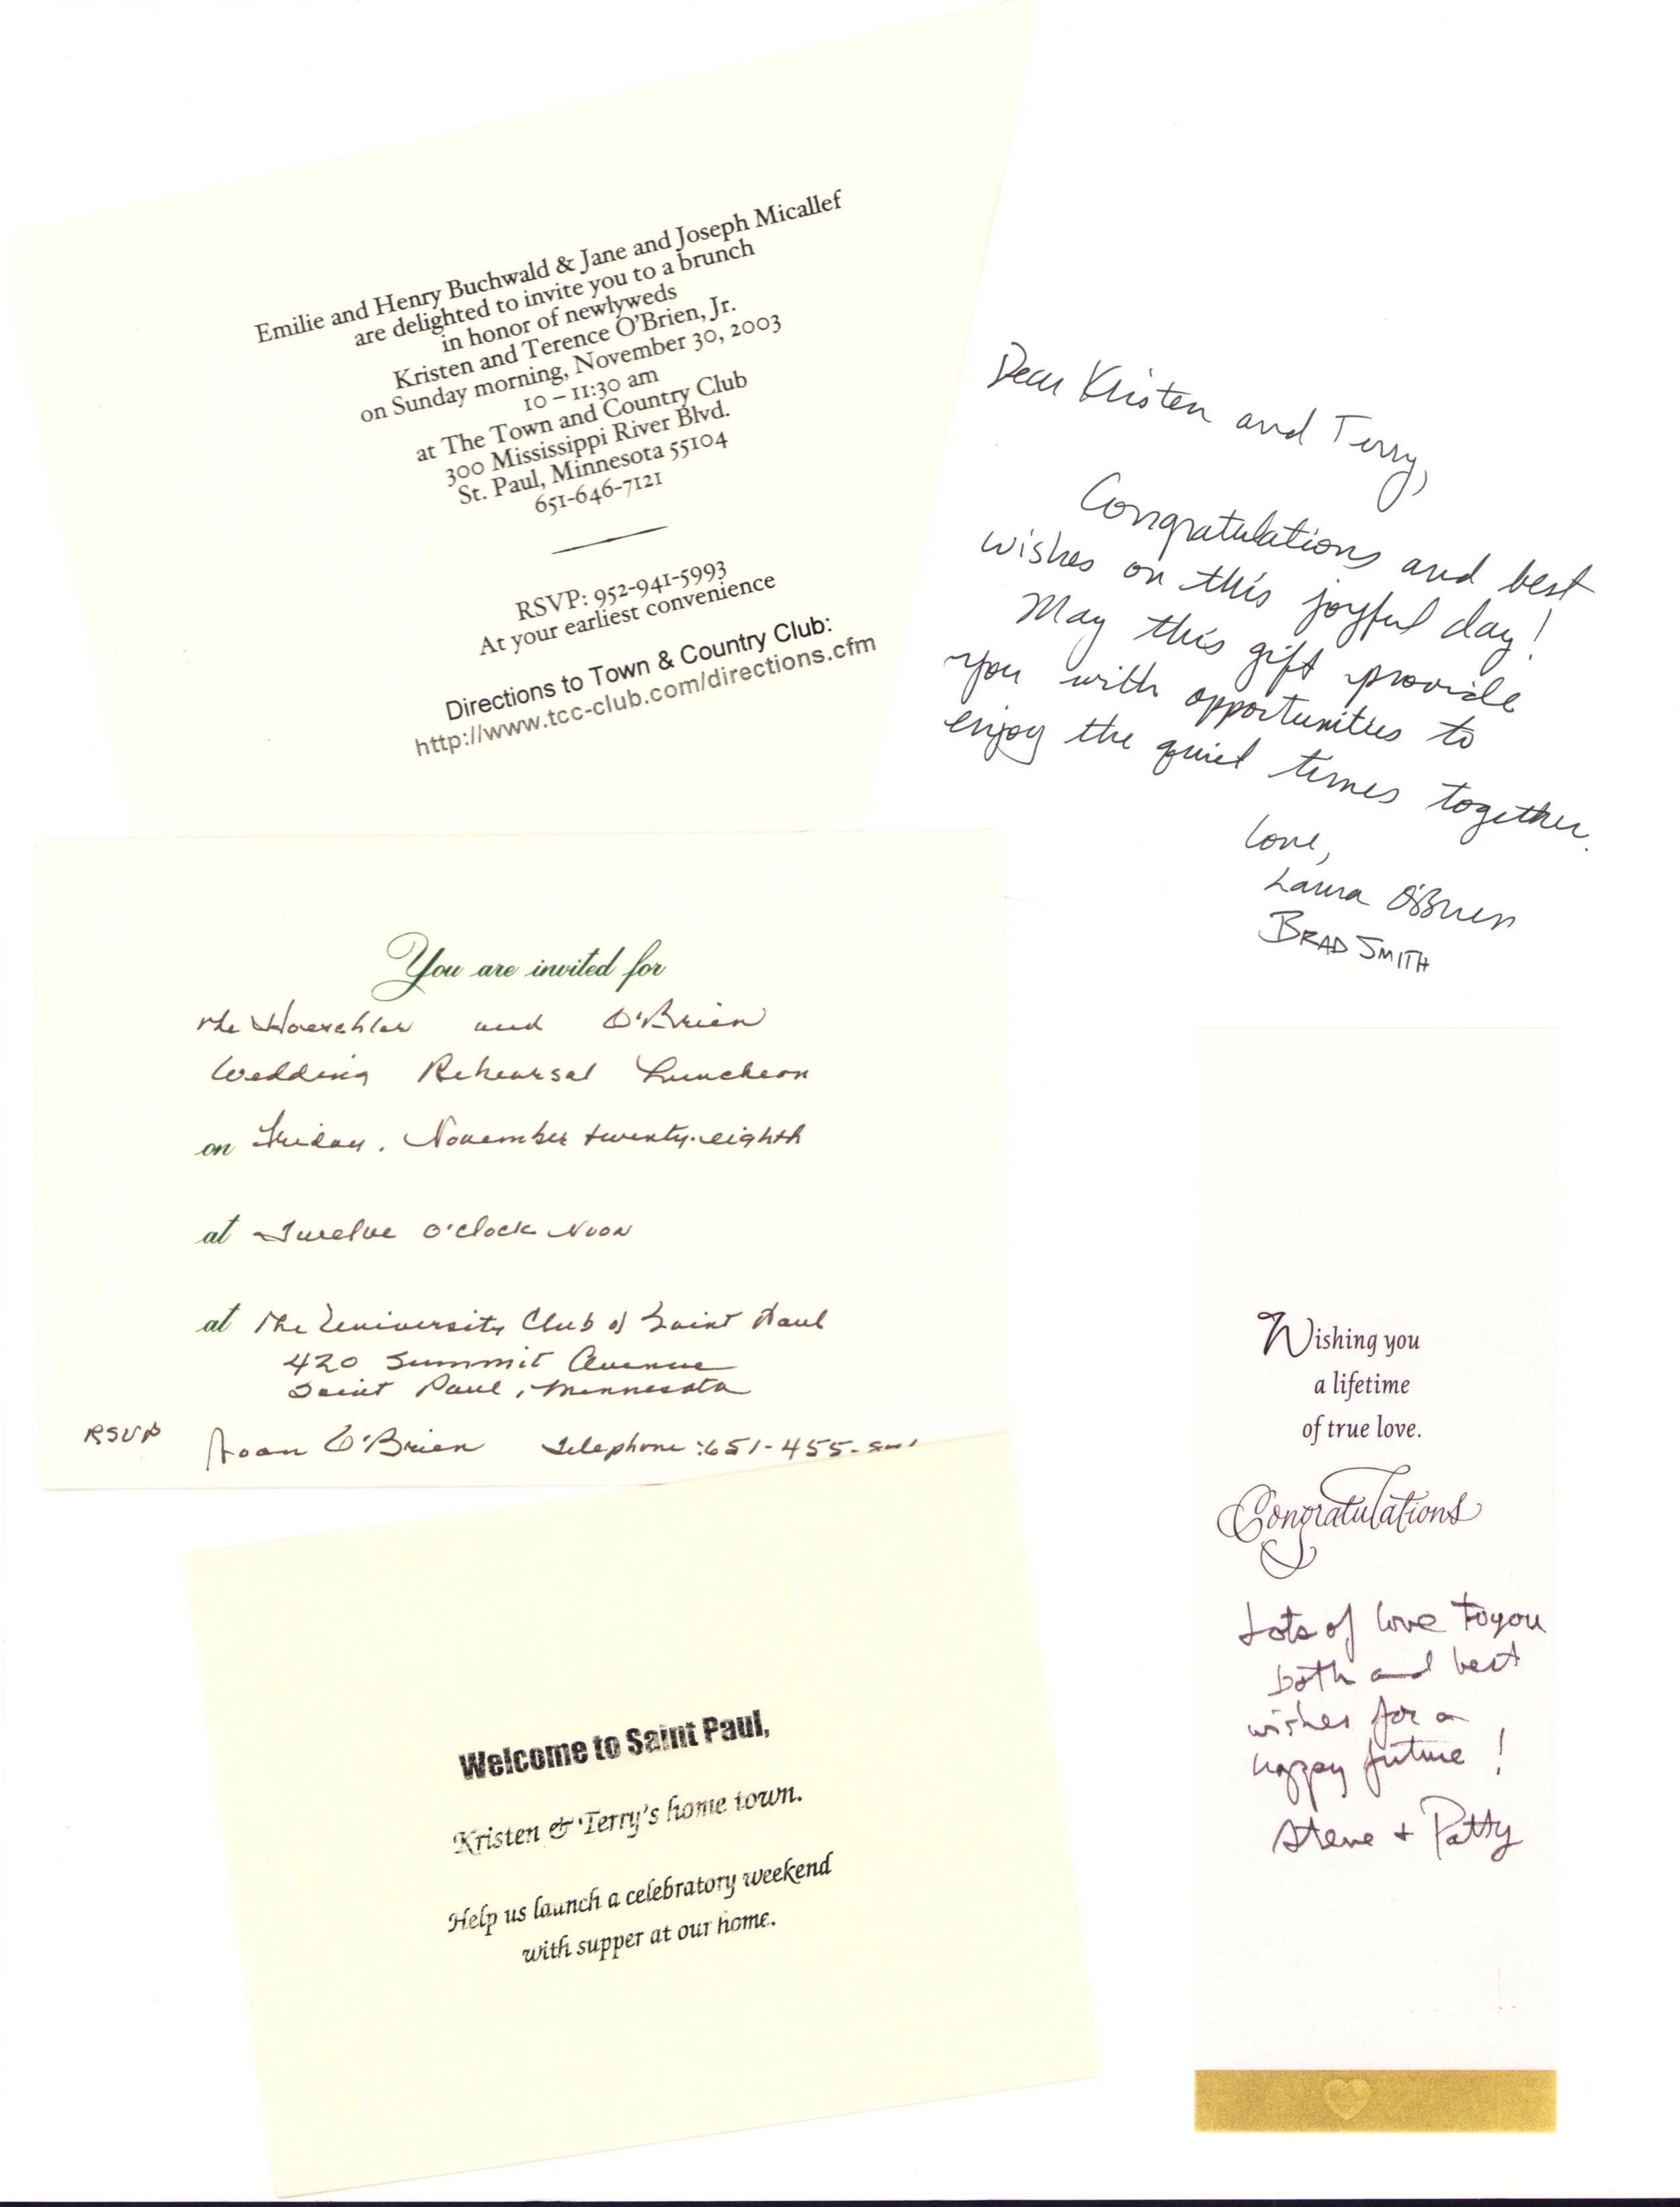 Emilie and Henry Buchwald & Jane and Joseph Micallef
are delighted to invite you to a brunch
in honor of newlyweds
Kristen and Terence O'Brien, Jr.
on Sunday morning, November 30, 2003
10 – 11:30 am
at The Town and Country Club
300 Mississippi River Blvd.
St. Paul, Minnesota 55104
651-646-7121
RSVP: 952-941-5993
At your earliest convenience
Directions to Town & Country Club:
http://www.tcc-club.com/directions.cfm
Dear Kristen and Terry,
Congratulations and best
wishes on this joyful day!
May this gift provide
you with opportunities to
enjoy the quiet times together.
Love,
Laura O'Brien
BRAD SMITH
You are invited for
the and O'Brien
Wedding Rehearsal Luncheon
on Friday, November twenty-eighth
at Twelve O'clock Noon
at The University Club of Saint Paul
420 Summit Avenue
Saint Paul, Minnesota
RSVP Joan O'Brien Telephone: 651-455-
Welcome to Saint Paul,
Kristen & Terry's home town.
Help us launch a celebratory weekend
with supper at our home.
Wishing you
a lifetime
of true love.
Congratulations
Lots of love to you
both and best
wishes for a
happy future!
Steve + Patty